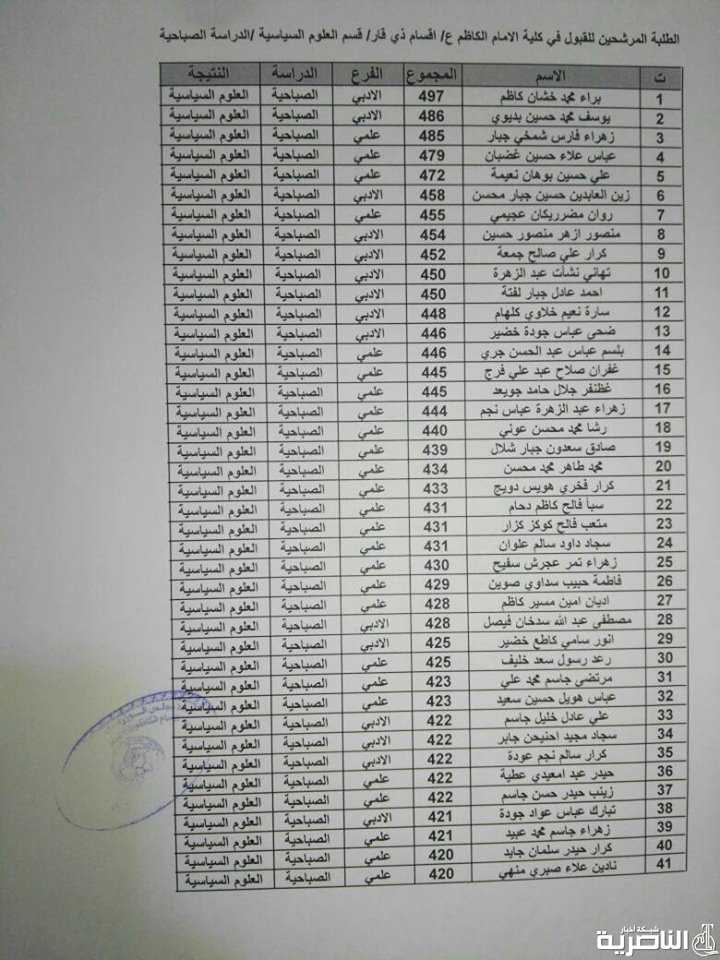 الطلبة المرشحين للقبول في كلية الامام الكاظم ع/ اقسام ذي قار/ قسم العلوم السياسية /الدراسة الصباحية
ت الاسم المجموع الفرع الدراسة النتيجة
1 براء محمد خشان كاظم 497 الادبي الصباحية العلوم السياسية
2 يوسف محمد حسين بديوي 486 الادبي الصباحية العلوم السياسية
3 زهراء فارس شمخي جبار 485 علمي الصباحية العلوم السياسية
4 عباس علاء حسين غضبان 479 علمي الصباحية العلوم السياسية
5 علي حسين بوهان نعيمة 472 علمي الصباحية العلوم السياسية
6 زين العابدين حسين جبار محسن 458 الادبي الصباحية العلوم السياسية
7 روان مضرريكان عجيمي 455 علمي الصباحية العلوم السياسية
8 منصور ازهر منصور حسين 454 الادبي الصباحية العلوم السياسية
9 كرار علي صالح جمعة 452 الادبي الصباحية العلوم السياسية
10 تهاني نشأت عبد الزهرة 450 الادبي الصباحية العلوم السياسية
11 احمد عادل جبار لفتة 450 الادبي الصباحية العلوم السياسية
12 سارة نعيم خلاوي كلهام 448 الادبي الصباحية العلوم السياسية
13 ضحى عباس جودة خضير 446 الادبي الصباحية العلوم السياسية
14 بلسم عباس عبد الحسن جري 446 علمي الصباحية العلوم السياسية
15 غفران صلاح عبد علي فرج 445 علمي الصباحية العلوم السياسية
16 غظنفر جلال حامد جويعد 445 علمي الصباحية العلوم السياسية
17 زهراء عبد الزهرة عباس نجم 444 علمي الصباحية العلوم السياسية
18 رشا محمد محسن عوني 440 علمي الصباحية العلوم السياسية
19 صادق سعدون جبار شلال 439 علمي الصباحية العلوم السياسية
20 محمد طاهر محمد محسن 434 علمي الصباحية العلوم السياسية
21 كرار فخري هويس دويج 433 علمي الصباحية العلوم السياسية
22 سبأ فالح كاظم دحام 431 علمي الصباحية العلوم السياسية
23 متعب فالح كوكز كزار 431 علمي الصباحية العلوم السياسية
24 سجاد داود سالم علوان 431 علمي الصباحية العلوم السياسية
25 زهراء ثمر عجرش سفيح 430 علمي الصباحية العلوم السياسية
26 فاطمة حبيب سداوي صوين 429 علمي الصباحية العلوم السياسية
27 اديان امين مسير كاظم 428 علمي الصباحية العلوم السياسية
28 مصطفى عبد الله سدخان فيصل 428 الادبي الصباحية العلوم السياسية
29 انور سامي كاطع خضير 425 الادبي الصباحية العلوم السياسية
30 رعد رسول سعد خليف 425 علمي الصباحية العلوم السياسية
31 مرتضى جاسم محمد علي 423 علمي الصباحية العلوم السياسية
32 عباس هويل حسين سعيد 423 علمي الصباحية العلوم السياسية
33 علي عادل خليل جاسم 422 الادبي الصباحية العلوم السياسية
34 سجاد مجيد احنيحن جابر 422 الادبي الصباحية العلوم السياسية
35 كرار سالم نجم عودة 422 الادبي الصباحية العلوم السياسية
36 حيدر عبد امعيدي عطية 422 علمي الصباحية العلوم السياسية
37 زينب حيدر حسن جاسم 422 علمي الصباحية العلوم السياسية
38 تبارك عباس عواد جودة 421 الادبي الصباحية العلوم السياسية
39 زهراء جاسم محمد عبيد 421 علمي الصباحية العلوم السياسية
40 كرار حيدر سلمان جايد 420 علمي الصباحية العلوم السياسية
41 نادين علاء صبري منهي 420 علمي الصباحية العلوم السياسية
شبكة أخبار
الناصرية